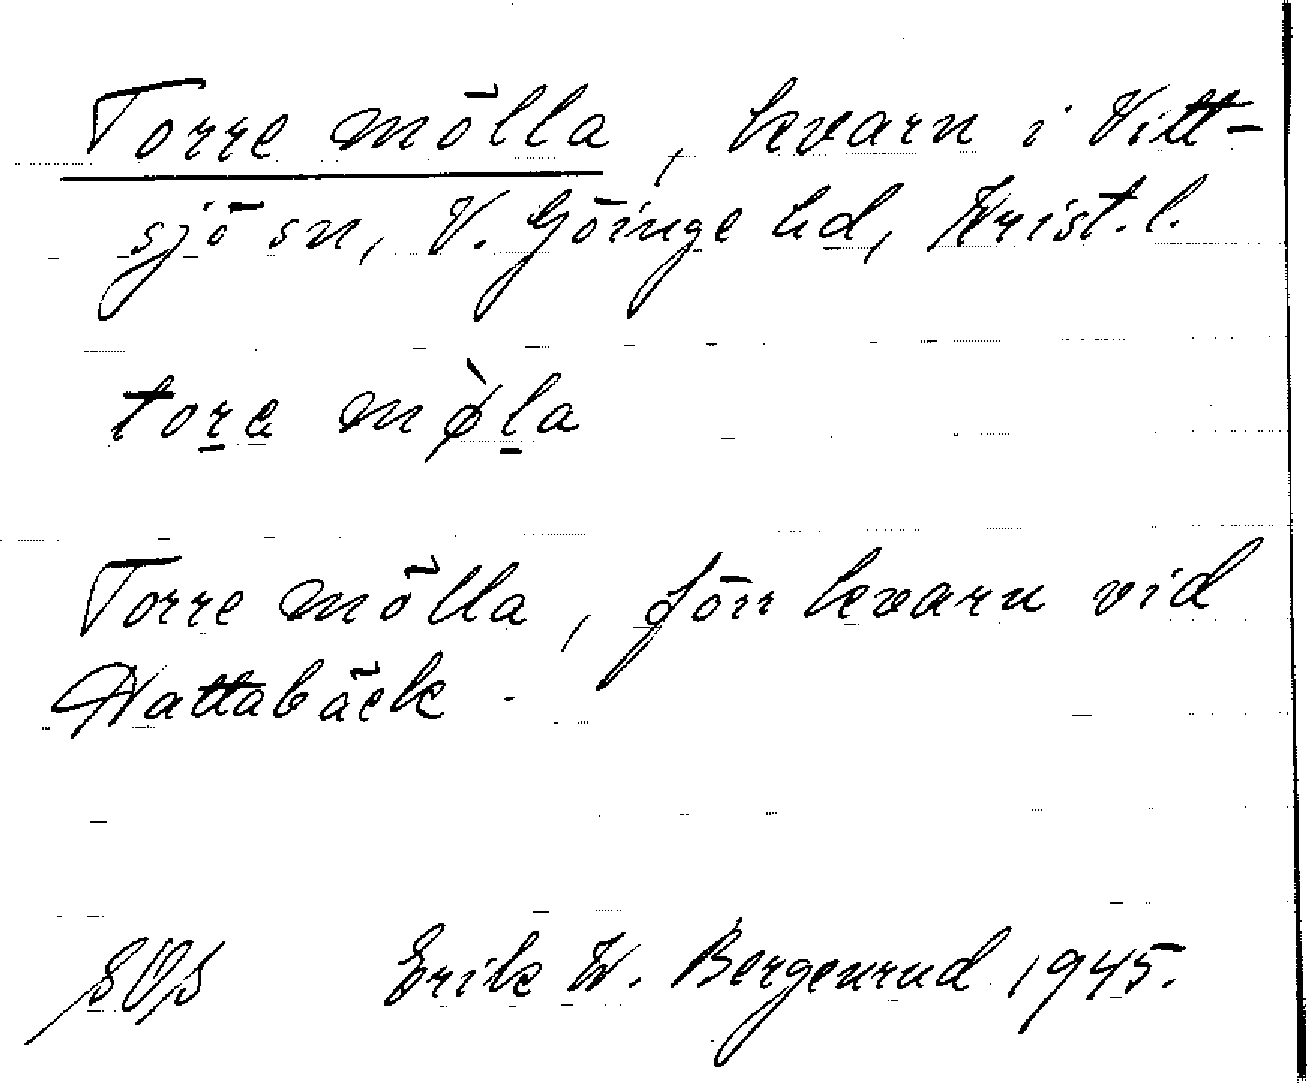 Torre mölla, kvarn i Vitt-
sjö sn, V. Göinge hd, Krist. l.
tore mø̀la
Torre mölla, förr kvarn vid
Hattabäck.
Erik W. Bergenrud 1945.